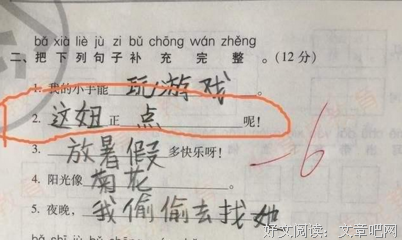 bǎ xià liè jù zi bǔ chōng wán zhěng
二、把下列句子补充完整。(12分)
1. 我的小手能玩游戏。
2. 这妞正点呢!
3. 放暑假多快乐呀!
4. 阳光像菊花。
5. 夜晚,我偷偷去找她
-6
好文阅读:文章吧网